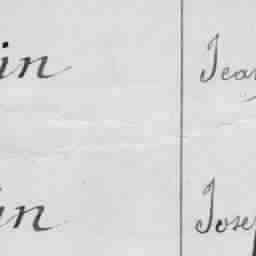 in Jea
in Jose